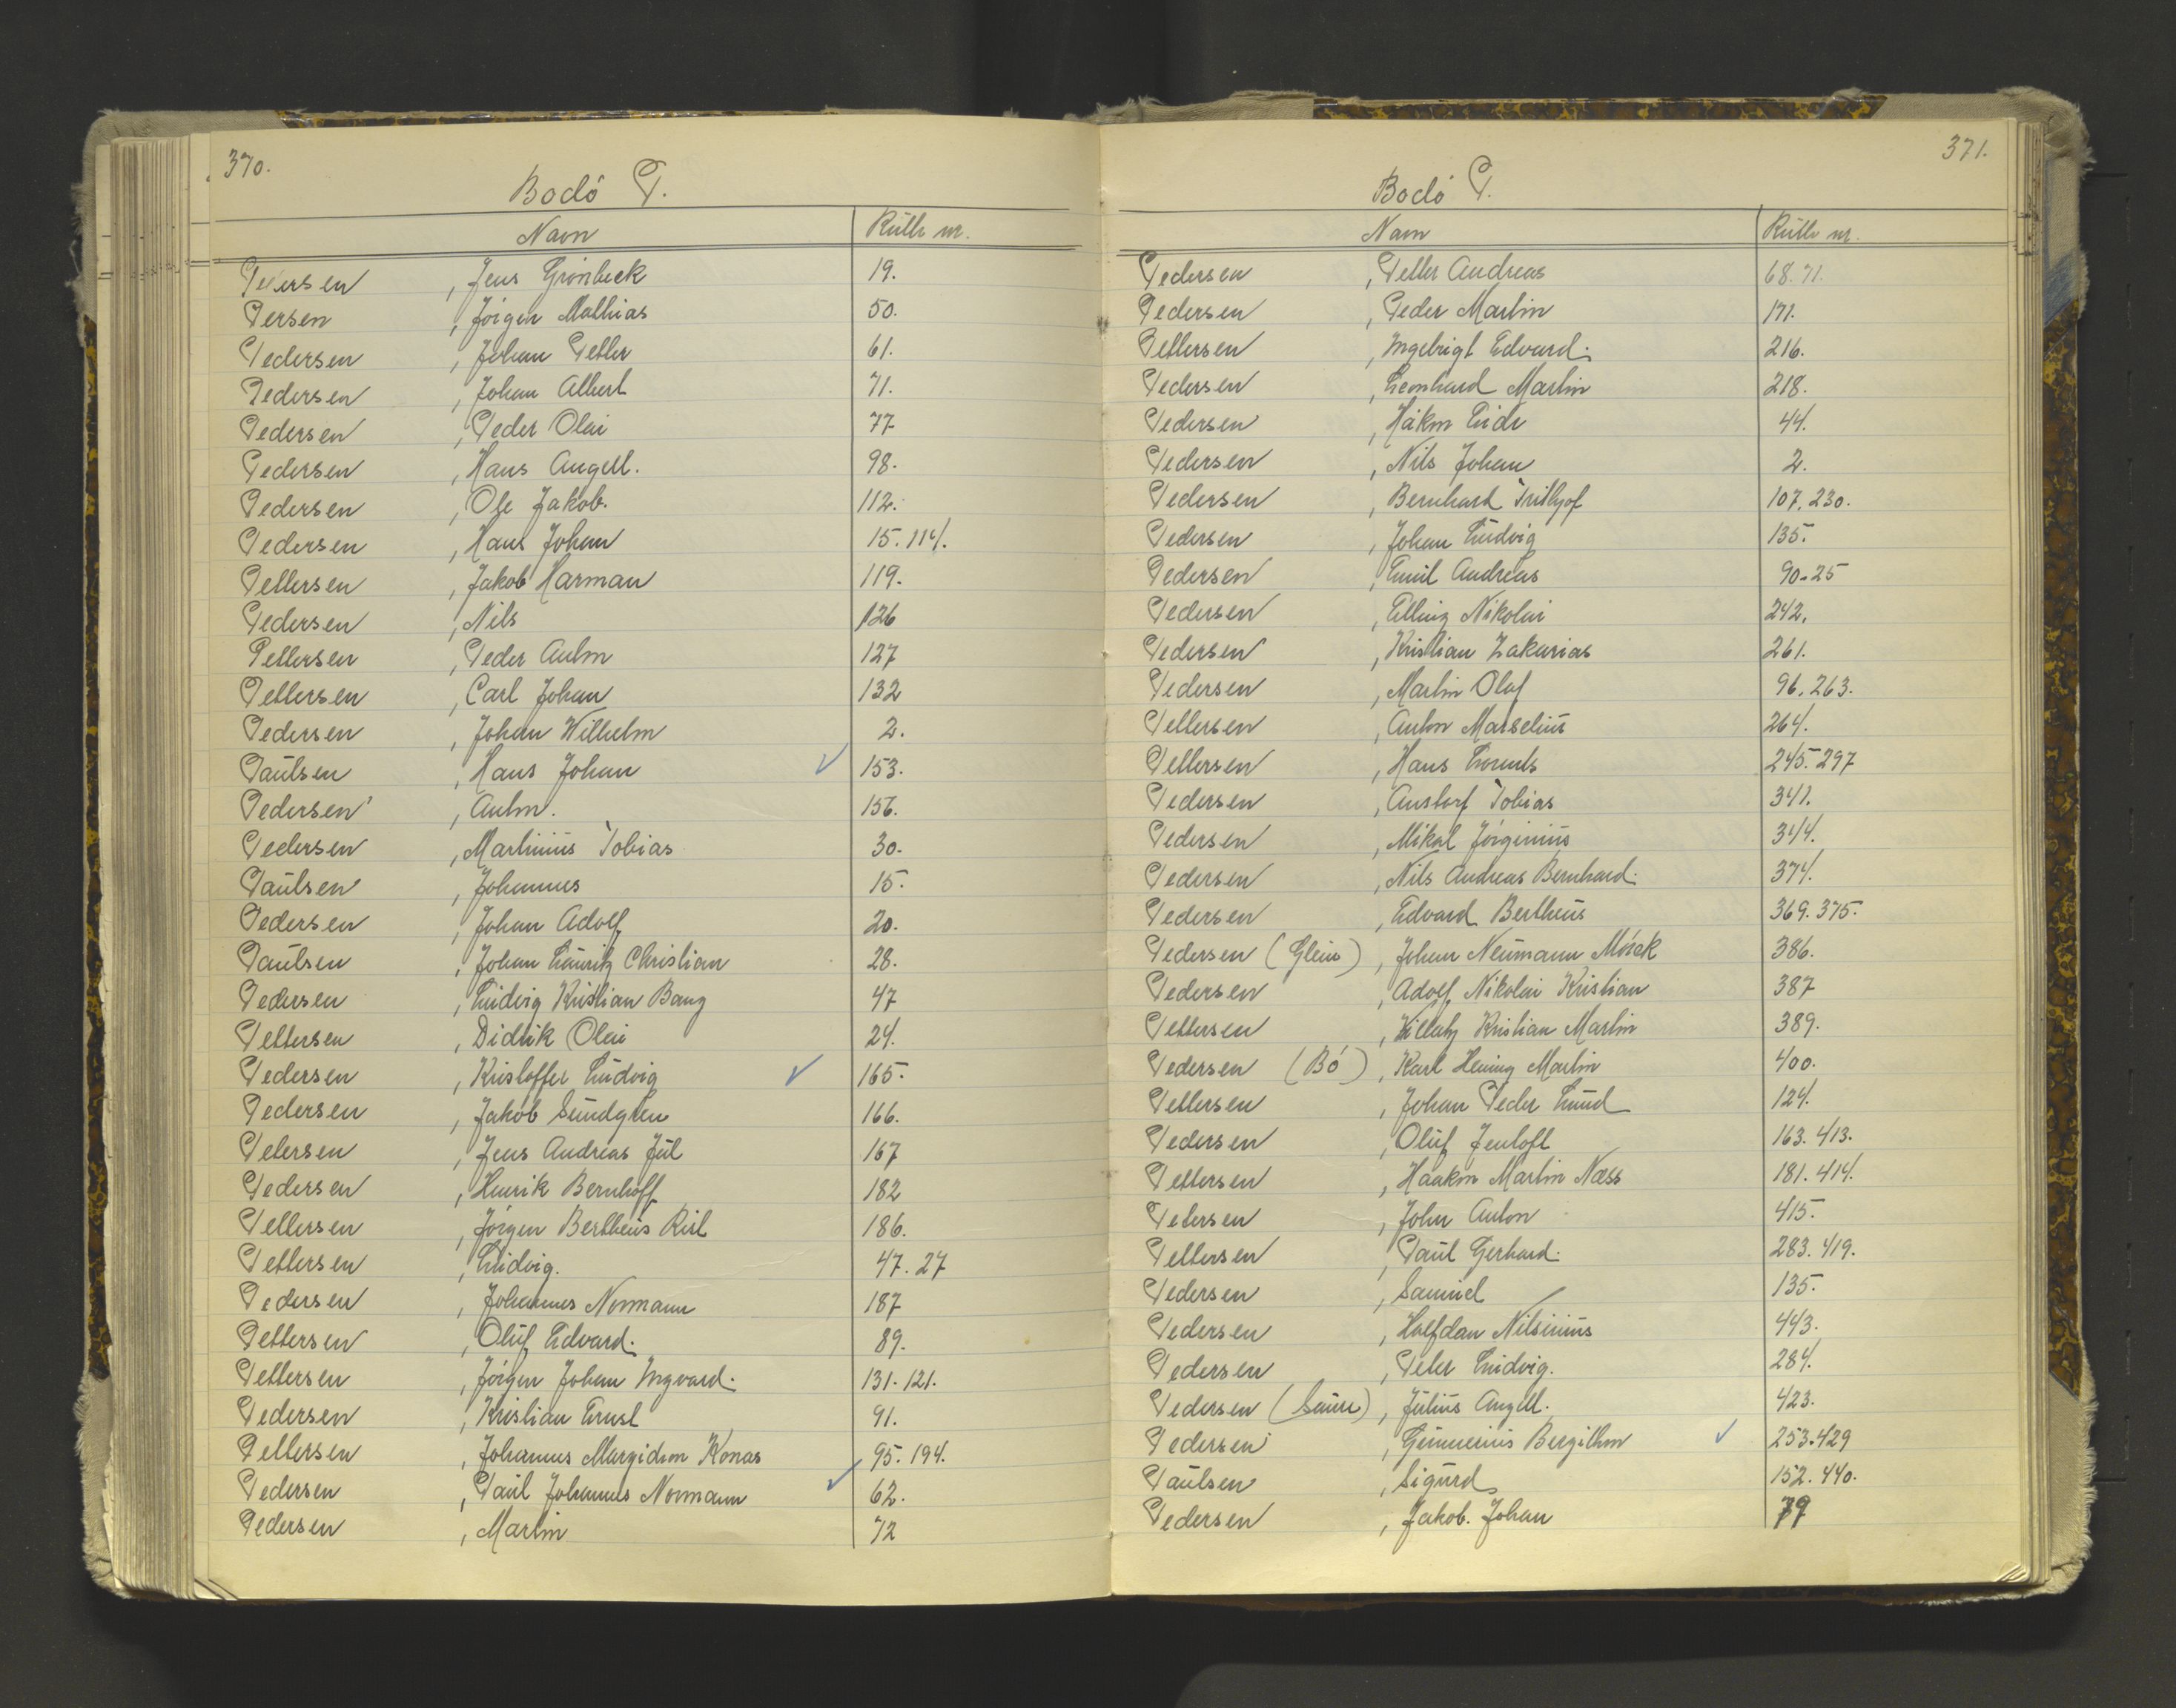 370.
Bodö P.
Navn Rulle nr.
Petersen , Jens Grönbeck 19.
Persen , Jörgen Mathias 50.
Pedersen , Johan Petter 61.
Pedersen , Johan Albert 71.
Pedersen , Peder Olai 77
Pedersen , Hans Angell. 98.
Pedersen , Ole Jakob. 112.
Pedersen , Hans Johan 15. 114.
Pettersen , Jakob Harman 119.
Pedersen , Nils 126
Pettersen , Peder Anton 127
Pettersen , Carl Johan 132
Pedersen , Johan Wilhelm 2.
Paulsen , Hans Johan ✓ 153.
Pedersen , Anton. 156.
Pedersen , Martinius Tobias 30.
Paulsen , Johannes 15.
Pedersen , Johan Adolf 20.
Paulsen , Johan Lauritz Christian 28.
Pedersen , Ludvig Kristian Bang 47
Pettersen , Didrik Olai 24.
Pedersen , Kristoffer Ludvig ✓ 165.
Pedersen , Jakob Sundgren 166.
Petersen , Jens Andreas Jul 167
Pedersen , Henrik Bernhoff 182
Pettersen , Jörgen Bertheus Rist 186.
Pettersen , Ludvig. 47. 27
Pedersen , Johannes Normann 187
Pettersen , Oluf Edvard. 89.
Pettersen , Jörgen Johan Ingvard. 131. 121.
Pedersen , Kristian Ernst 91.
Pettersen , Johannes Margidon Konas 95. 194.
Pedersen , Paul Johannes Normann ✓ 62.
Pedersen , Martin 72
371.
Bodö P.
Navn Rulle nr.
Pedersen , Petter Andreas 68. 71.
Pedersen , Peder Martin 171.
Pettersen , Ingebrigt Edvard. 216.
Pedersen , Leonhard Martin 218.
Pedersen , Håkon Eide 44.
Pedersen , Nils Johan 2.
Pedersen , Bernhard Fritjof 107. 230.
Pedersen , Johan Ludvig 135.
Pedersen , Emil Andreas 90-25
Pedersen , Elling Nikolai 242.
Pedersen , Kristian Zakarias 261.
Pedersen , Martin Olaf 96. 263.
Pettersen , Anton Marselius 264.
Pettersen , Hans Lorents 245. 297
Pedersen , Tobias 341.
Pedersen , Mikal Jörginius 344.
Pedersen , Nils Andreas Bernhard. 374.
Pedersen , Edvard Bertheus 369. 375.
Pedersen (Glein) , Johan Neumann Mörck 386.
Pedersen , Adolf Nikolai Kristian 387
Pettersen , Kristian Martin 389.
Pedersen (Bö) , Karl Hening Martin 400.
Pettersen , Johan Peder Lund 124.
Pedersen , Oluf Jentoft 163. 413.
Pettersen , Haakon Martin Næss 181. 414.
Petersen , John Anton 415.
Pettersen , Paul Gerhard. 283. 419.
Pedersen , Samuel 135.
Pedersen , Halfdan Nilsinius 443.
Pedersen , Peter Ludvig. 284.
Pedersen (Saure) , Julius Angell. 423.
Pedersen , Bergithon ✓ 253. 429
Paulsen , Sigurd 152. 440.
Pedersen , Jakob. Johan 79